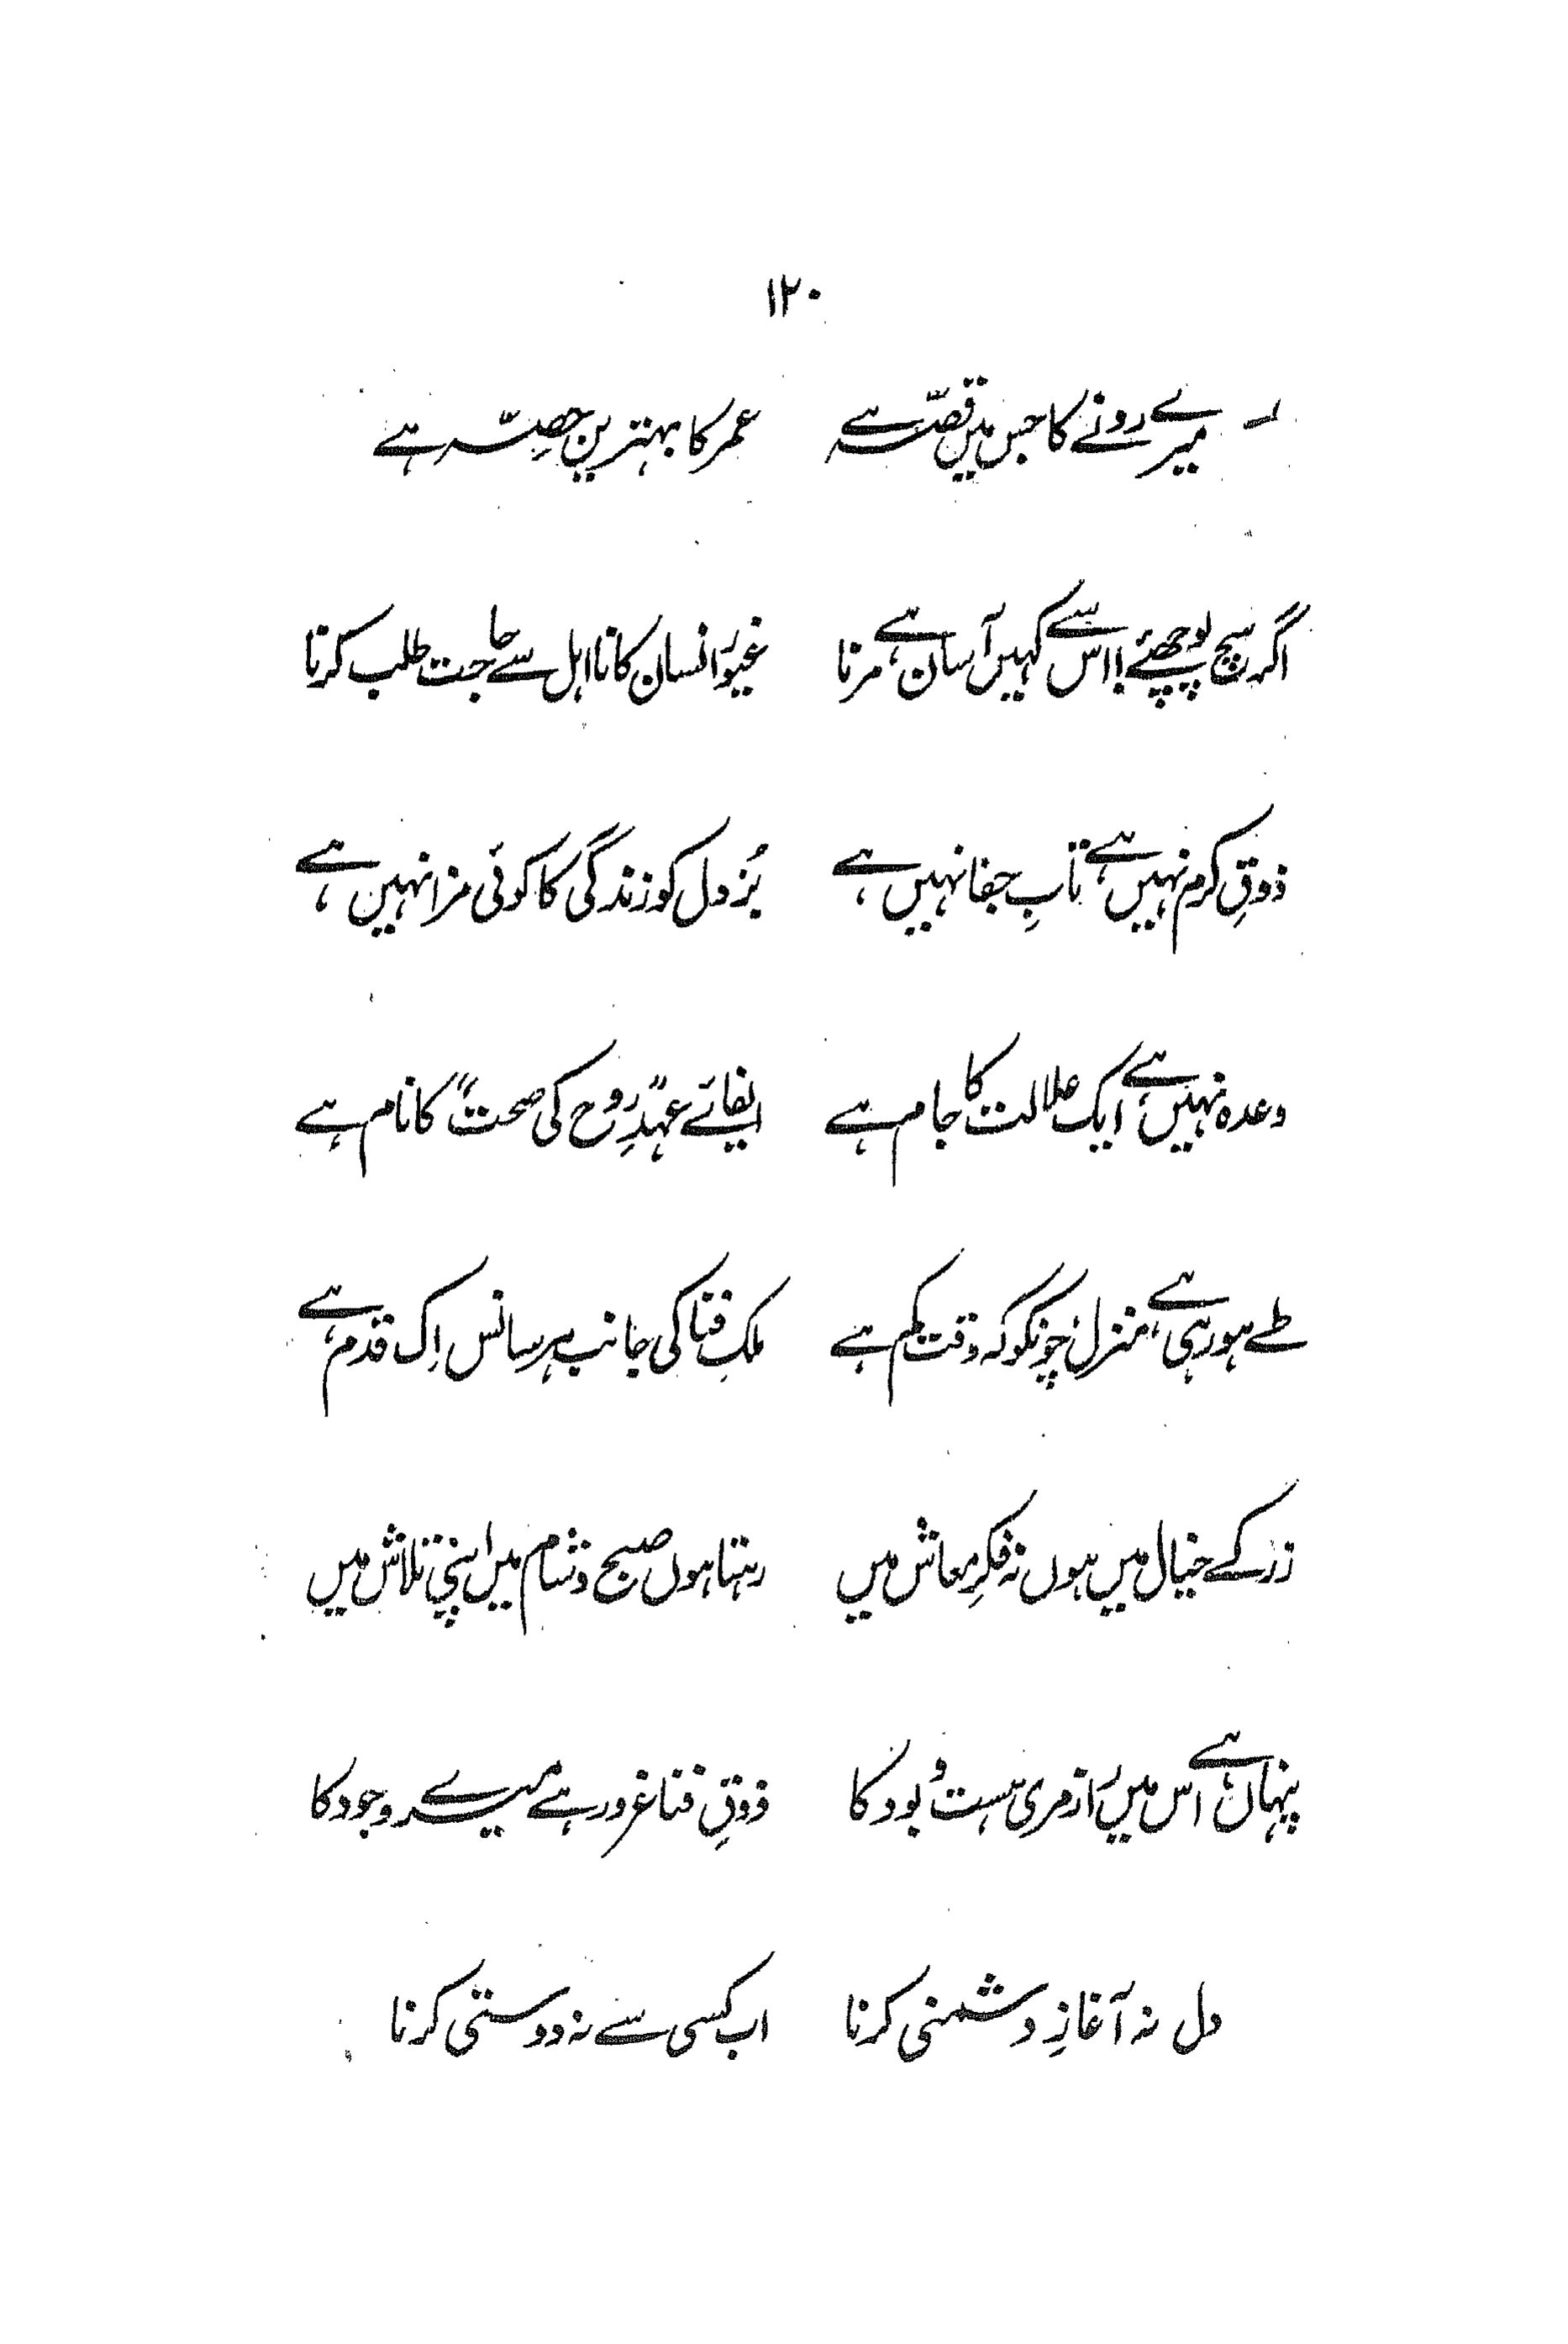 ۱۲۰
میرے رونے کا جس میں قصّہ ہے عمر کا بہترین حِصّہ ہے
اگر سچ پوچھئے! اس سے کہیں آسان ہے مرنا غیور انسان کا نااہل سے حاجت طلب کرنا
ذوقِ کرم نہیں ہے، تابِ جفا نہیں ہے بُزدل کو زندگی کا کوئی مزا نہیں ہے
وعدہ نہیں ہے، ایک علالت کا جام ہے ایفائے عہد "رُوح کی صحت" کا نام ہے
طے ہو رہی ہے منزل، چونکو کہ وقت کم ہے ملکِ فنا کی جانب ہر سانس اِک قدم ہے
زر کے خیال میں ہوں نہ فکرِ معاش میں رہتا ہوں صبح و شام میں اپنی تلاش میں
پنہاں ہے اس میں راز مری ہست و بود کا ذوقِ فنا غرور ہے میرے وجود کا
دل نہ آغازِ دشمنی کرنا اب کسی سے نہ دوستی کرنا